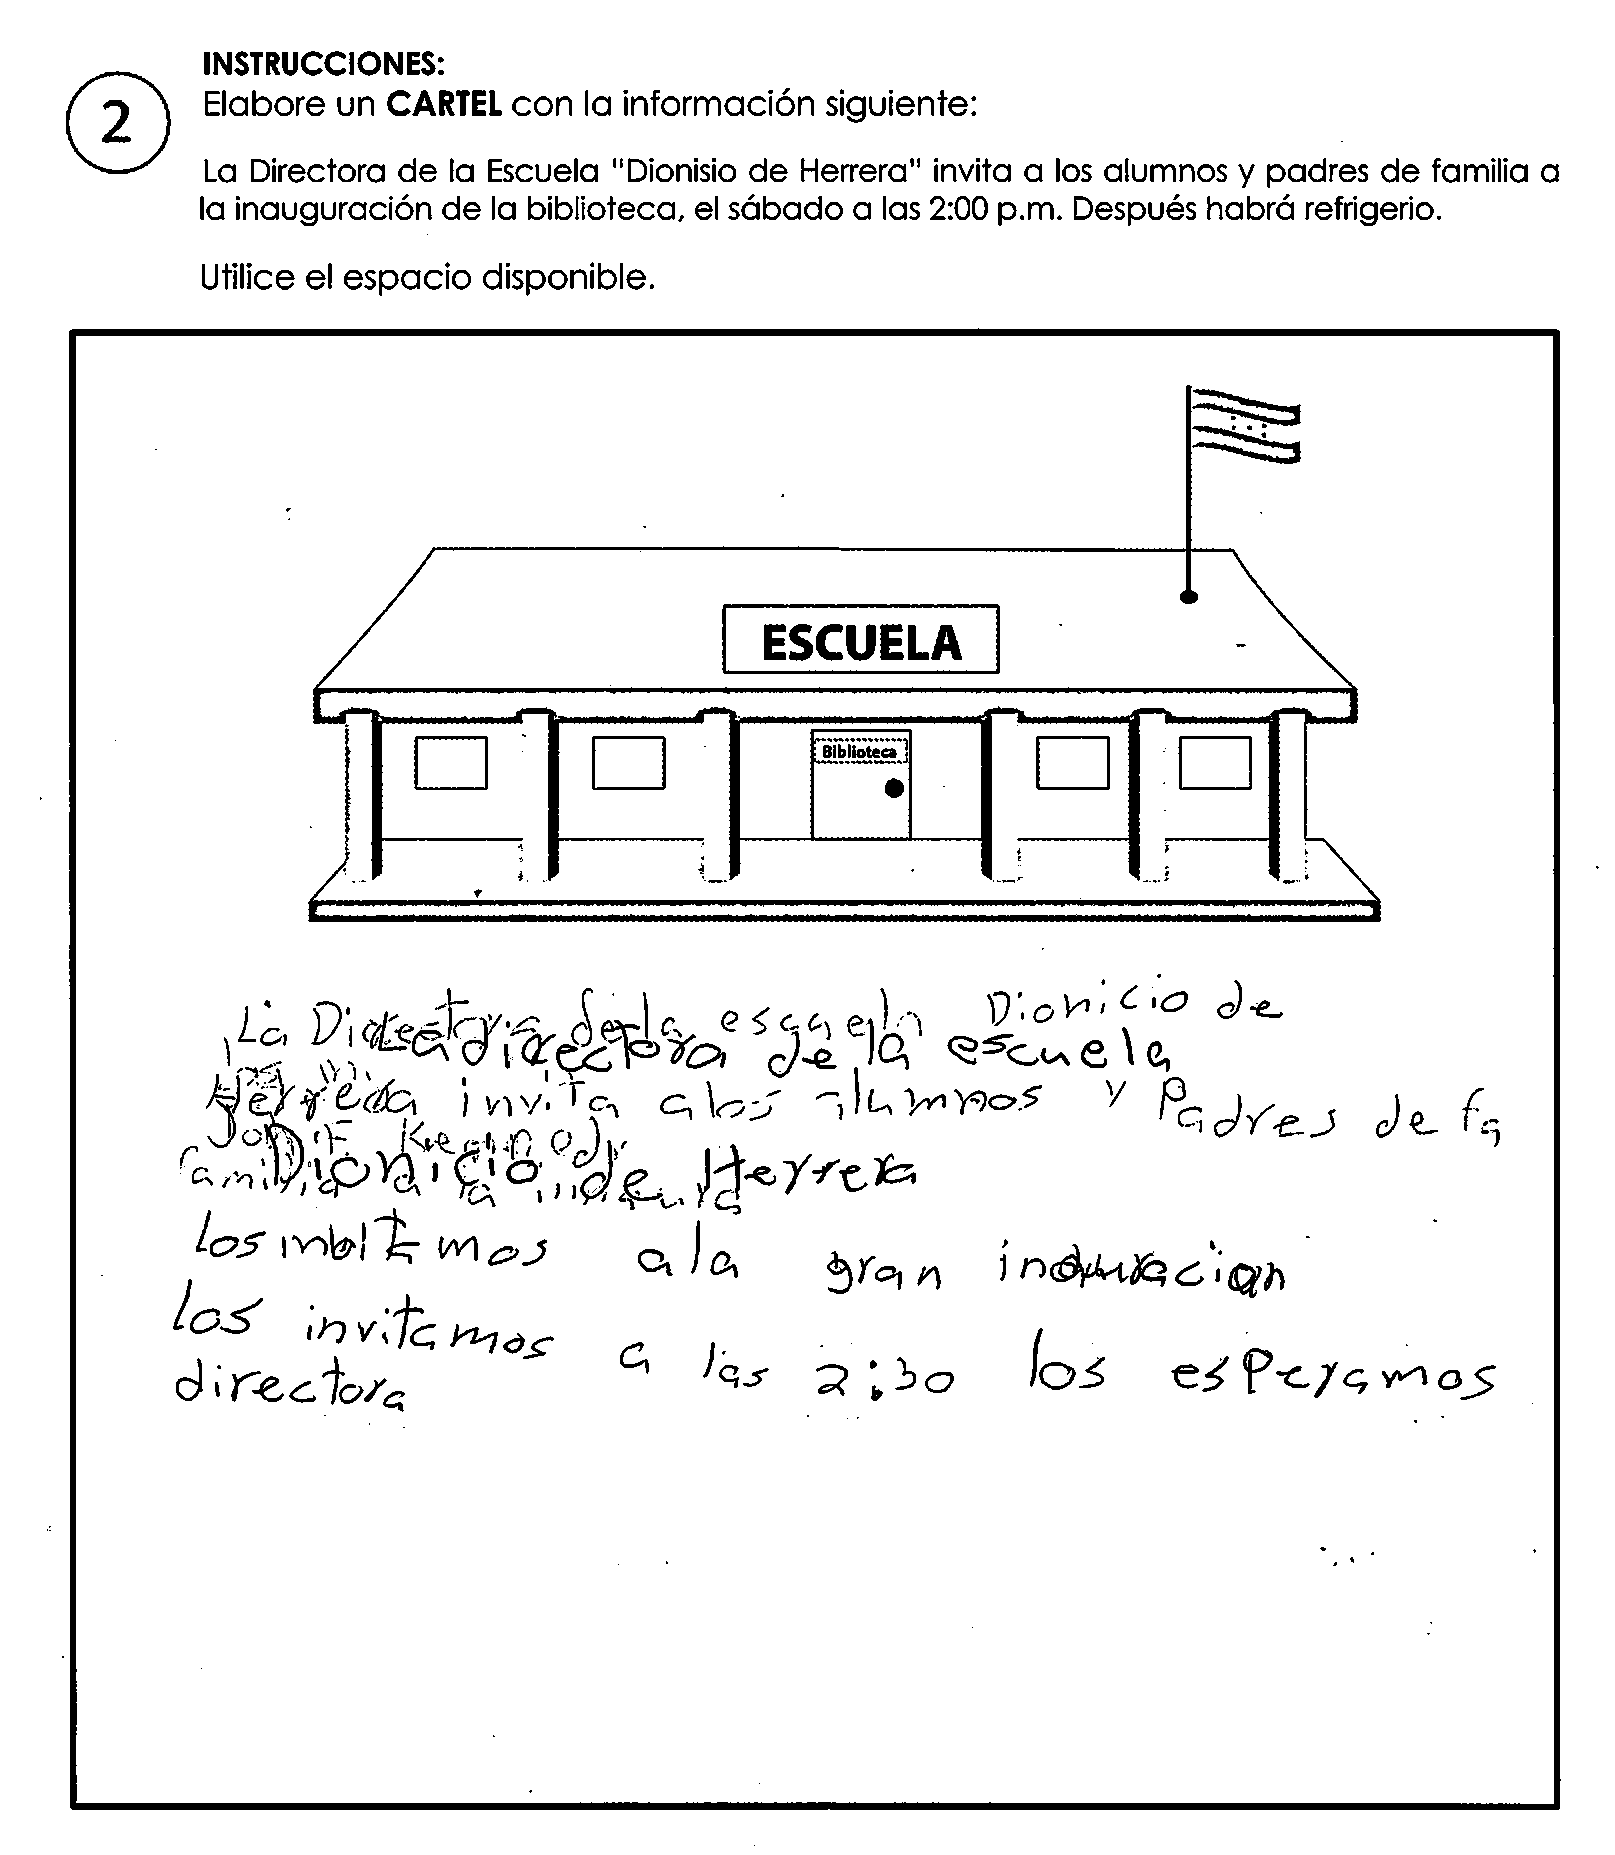 INSTRUCCIONES:
2
Elabore un CARTEL con la información siguiente:
La Directora de la Escuela "Dionisio de Herrera" invita a los alumnos y padres de familia a
la inauguración de la biblioteca, el sábado a las 2:00 p.m. Después habrá refrigerio.
Utilice el espacio disponible.
ESCUELA
Biblioteca
La Directora de la Dionicio de
La directora de la escuela
Herrera invita a los alumnos y Padres de fa
familia a la
Dionicio de Herrera
los a la gran
los invitamos a las 2:30 los esperamos
directora